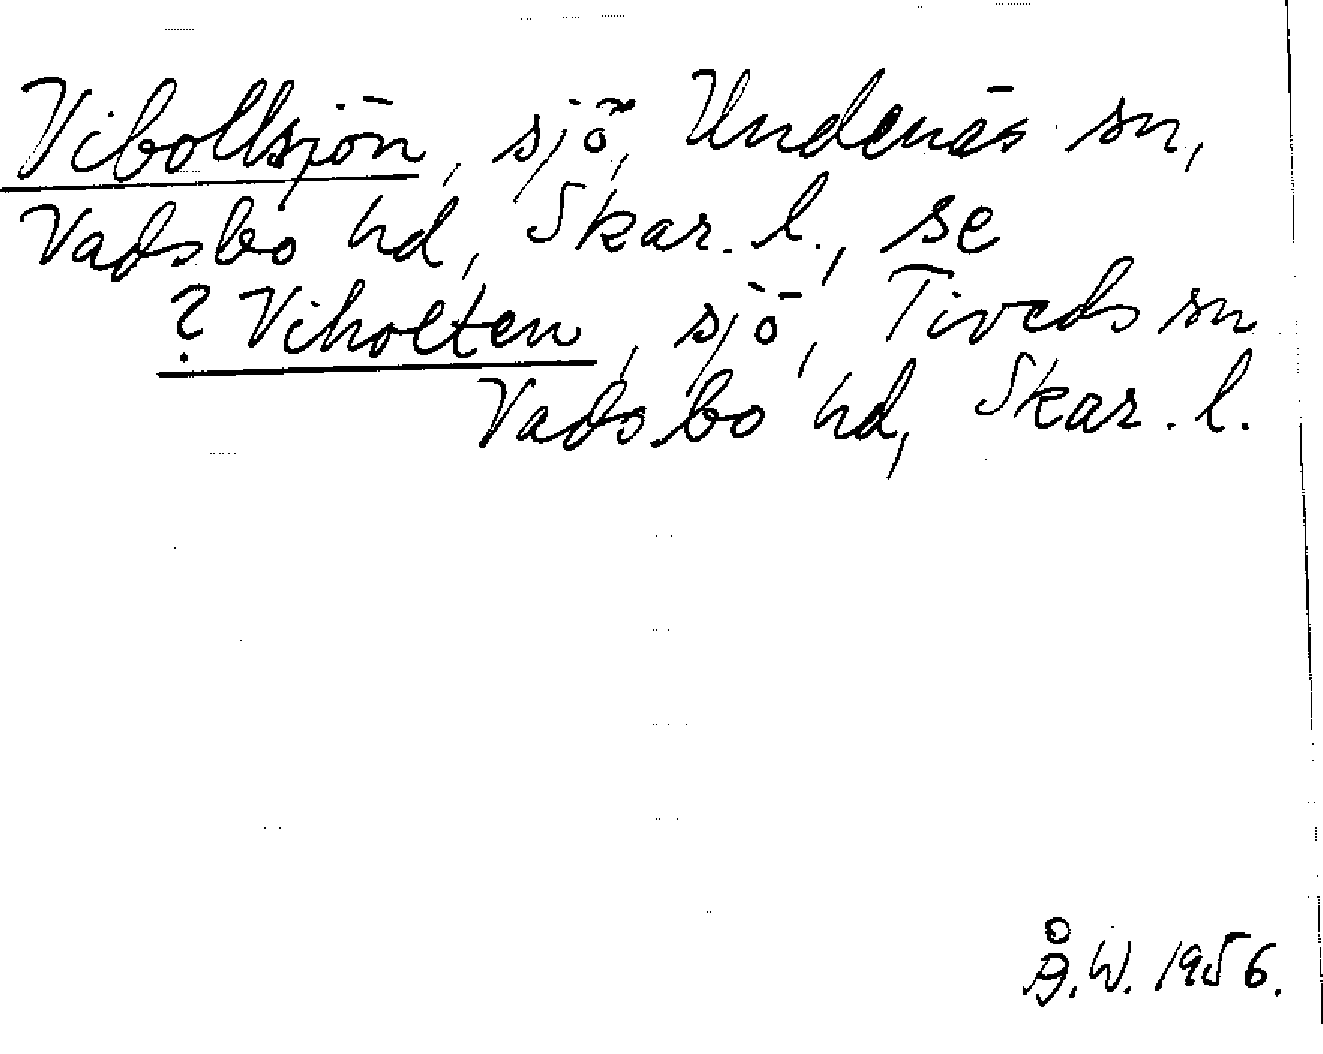 Vibollsjön, sjö, Undenäs sn,
Vadsbo hd, Skar. l., se
? Viholten, sjö, Tiveds sn
Vadsbo hd, Skar. l.
Å.W. 1956.